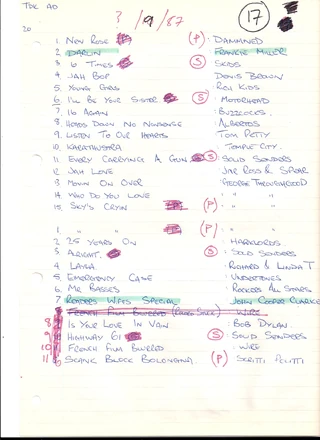 TDK AD
? /9/87
17
20
1. New Rose (P) : Dammned
2. Darlin Frankie Miller
3. 6 Times (S) : Skids
4. Jah Bop Denis Brown
5. Young Girls : Rich Kids
6. I'll Be Your Sister (S) : Motorhead
7. 16 Again : Buzzcocks
8. Heads Down No Nonsense : Albertos
9. Listen To Our Hearts Tom Petty
10. Karathustra : Temple City
11. Every Carrying A Gun (S) : Solid Senders
12. Jah Love : Jah Ross & Spear
13. Movin On Over : George Thoroughgood
14. Who Do You Love : " "
15. Sky's Cryin (P) : " "
1. " " (P) : " "
2. 25 Years On : Hawklords
3. Alright (S) : Solid Senders
4. Layla : Richard & Linda T
5. Emergency Case : Undertones
6. Mr Basses : Rockers All Stars
7. Readers Wifes Special John Cooper Clarke
8 French Film Blurred : Wire
8 Is Your Love In Vain : Bob Dylan
9 Highway 61 (S) : Solid Senders
10 French Film Blurred : Wire
11 Scanc Block Bolongna (P) : Scritti Politti